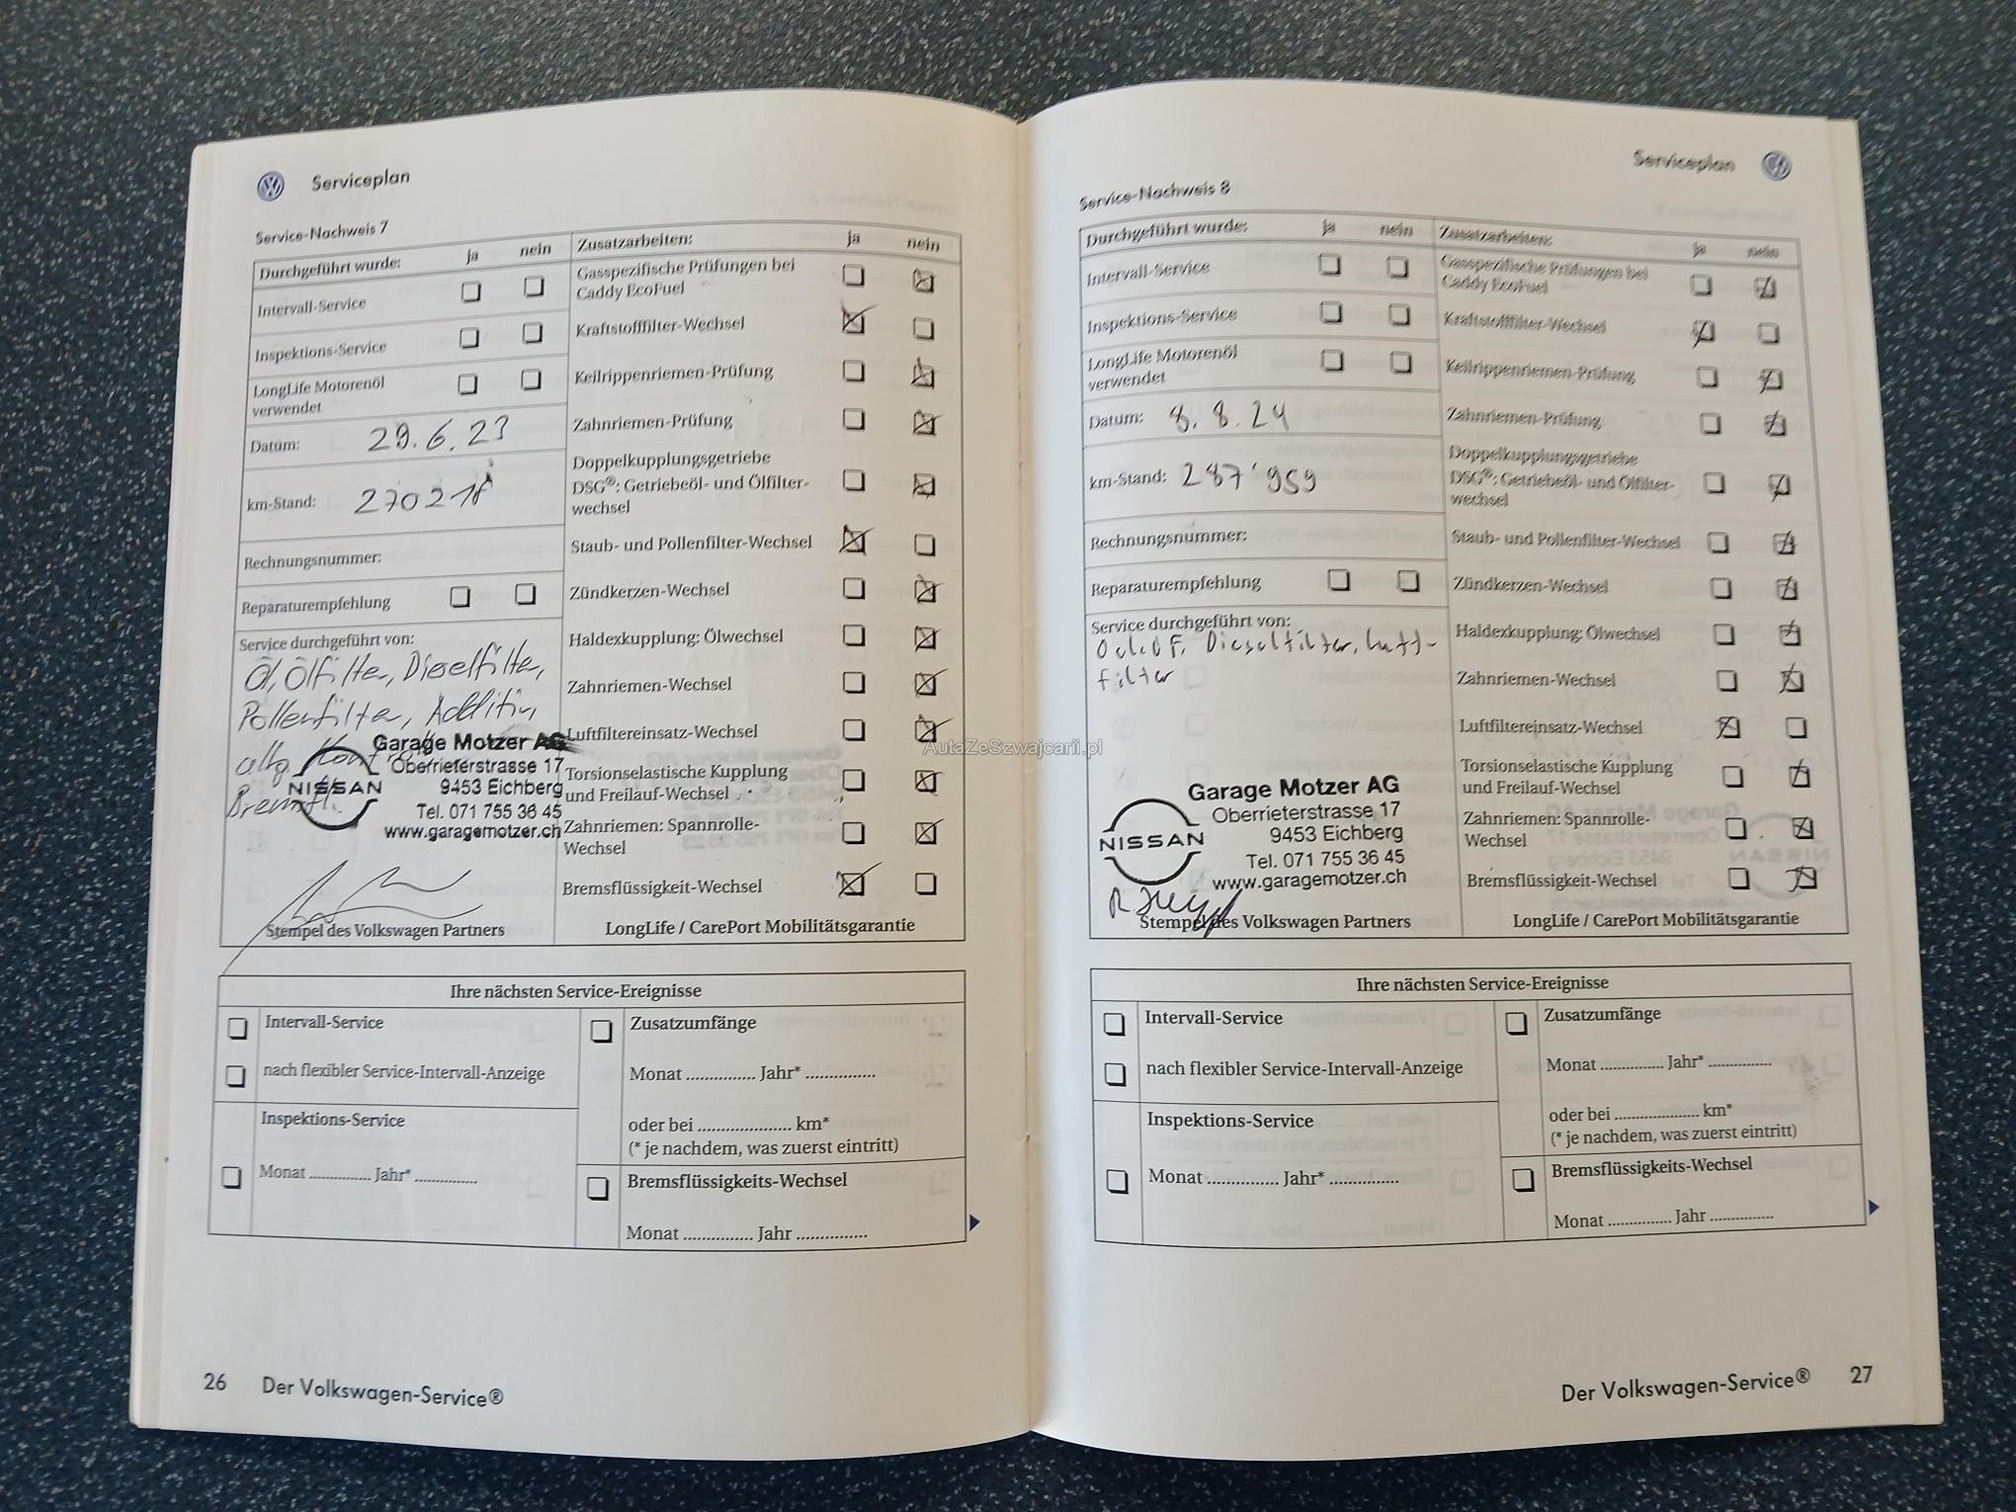 Serviceplan
Service-Nachweis 7
Durchgeführt wurde: ja nein
Intervall-Service
Inspektions-Service
LongLife Motorenöl
verwendet
Datum: 29.6.23
km-Stand: 270218
Rechnungsnummer:
Reparaturempfehlung
Service durchgeführt von:
Öl, Ölfilter, Dieselfilter,
Pollenfilter, Additiv,
allg.
Bremsfl.
Garage Motzer AG
Oberrieterstrasse 17
9453 Eichberg
Tel. 071 755 36 45
www.garagemotzer.ch
NISSAN
Stempel des Volkswagen Partners
Zusatzarbeiten: ja nein
Gasspezifische Prüfungen bei
Caddy EcoFuel
Kraftstofffilter-Wechsel
Keilrippenriemen-Prüfung
Zahnriemen-Prüfung
Doppelkupplungsgetriebe
DSG®: Getriebeöl- und Ölfilter-
wechsel
Staub- und Pollenfilter-Wechsel
Zündkerzen-Wechsel
Haldexkupplung: Ölwechsel
Zahnriemen-Wechsel
Luftfiltereinsatz-Wechsel
Torsionselastische Kupplung
und Freilauf-Wechsel
Zahnriemen: Spannrolle-
Wechsel
Bremsflüssigkeit-Wechsel
LongLife / CarePort Mobilitätsgarantie
Ihre nächsten Service-Ereignisse
Intervall-Service
nach flexibler Service-Intervall-Anzeige
Inspektions-Service
Monat ............... Jahr* ...............
Zusatzumfänge
Monat ............... Jahr* ...............
oder bei .................... km*
(* je nachdem, was zuerst eintritt)
Bremsflüssigkeits-Wechsel
Monat ............... Jahr ...............
26 Der Volkswagen-Service®
Serviceplan
Service-Nachweis 8
Durchgeführt wurde: ja nein
Intervall-Service
Inspektions-Service
LongLife Motorenöl
verwendet
Datum: 8.8.24
km-Stand: 287'959
Rechnungsnummer:
Reparaturempfehlung
Service durchgeführt von:
Dieselfilter, Luft-
filter
Garage Motzer AG
Oberrieterstrasse 17
9453 Eichberg
Tel. 071 755 36 45
www.garagemotzer.ch
NISSAN
Stempel des Volkswagen Partners
Zusatzarbeiten: ja nein
Gasspezifische Prüfungen bei
Caddy EcoFuel
Kraftstofffilter-Wechsel
Keilrippenriemen-Prüfung
Zahnriemen-Prüfung
Doppelkupplungsgetriebe
DSG®: Getriebeöl- und Ölfilter-
wechsel
Staub- und Pollenfilter-Wechsel
Zündkerzen-Wechsel
Haldexkupplung: Ölwechsel
Zahnriemen-Wechsel
Luftfiltereinsatz-Wechsel
Torsionselastische Kupplung
und Freilauf-Wechsel
Zahnriemen: Spannrolle-
Wechsel
Bremsflüssigkeit-Wechsel
LongLife / CarePort Mobilitätsgarantie
Ihre nächsten Service-Ereignisse
Intervall-Service
nach flexibler Service-Intervall-Anzeige
Inspektions-Service
Monat ............... Jahr* ...............
Zusatzumfänge
Monat ............... Jahr* ...............
oder bei .................... km*
(* je nachdem, was zuerst eintritt)
Bremsflüssigkeits-Wechsel
Monat ............... Jahr ...............
Der Volkswagen-Service® 27
AutaZeSzwajcarii.pl